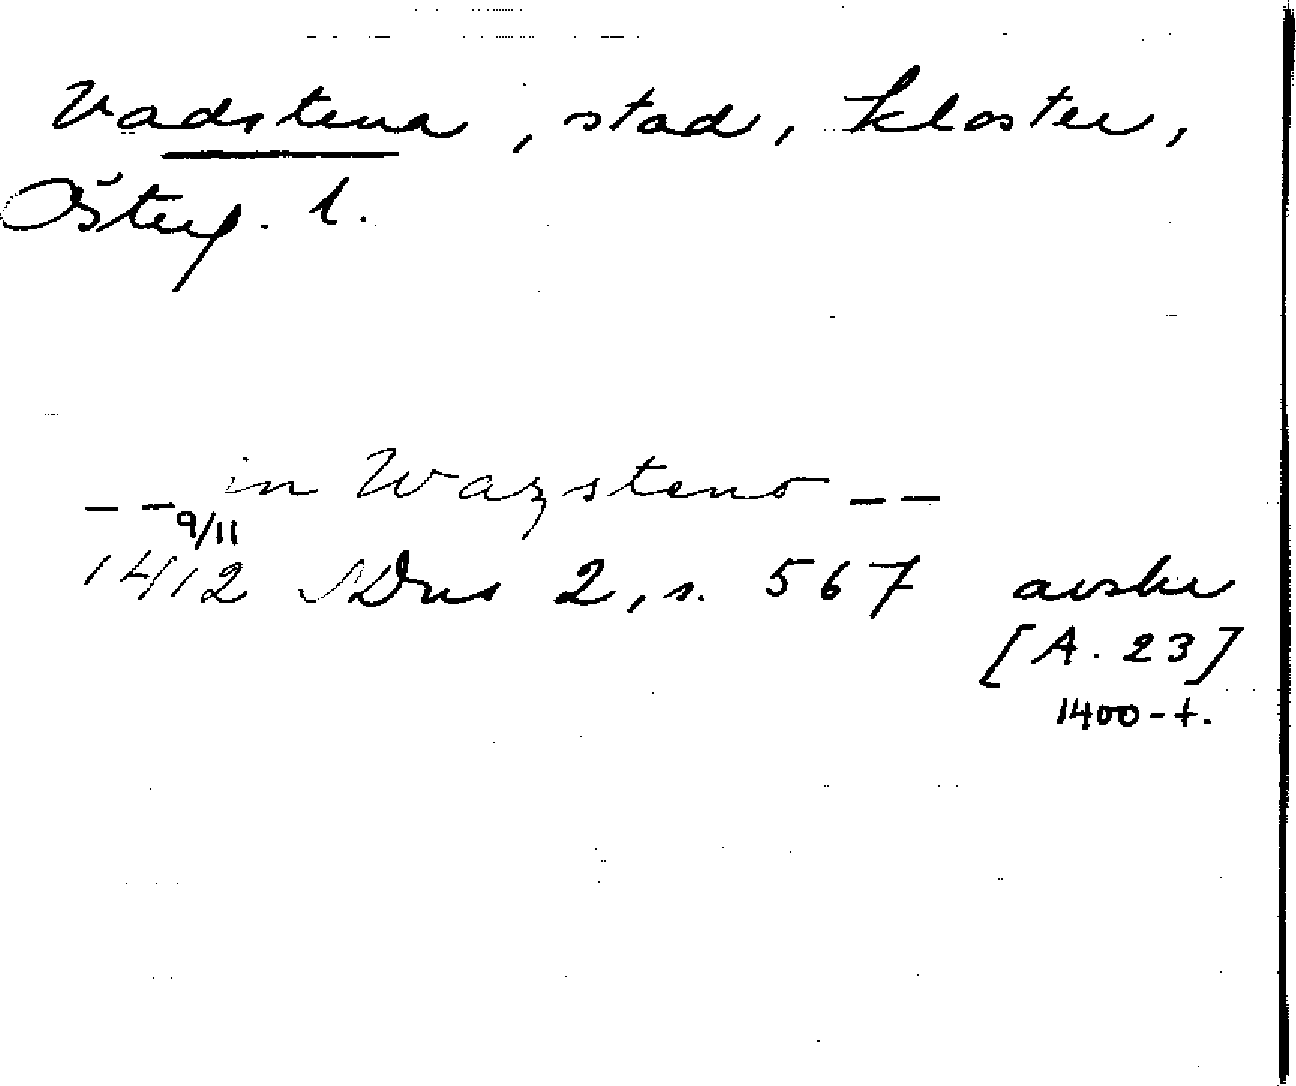 Vadstena, stad, kloster,
Österg. l.
-- in Wazsteno --
9/11
1412 NDns 2, s. 567 avskr
[A. 23]
1400-t.